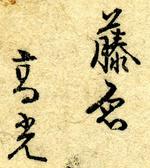 藤原
高光